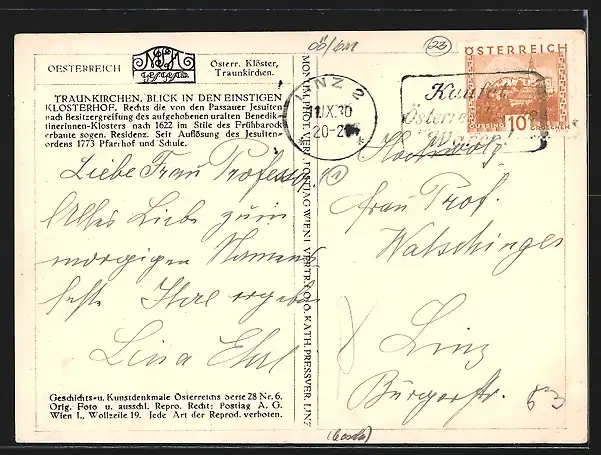 OESTERREICH
Österr. Klöster,
Traunkirchen.
TRAUNKIRCHEN. BLICK IN DEN EINSTIGEN
KLOSTERHOF. Rechts die von den Passauer Jesuiten
nach Besitzergreifung des aufgehobenen uralten Benedik-
tinerinnen-Klosters nach 1622 im Stile des Frühbarock
erbaute sogen. Residenz. Seit Auflösung des Jesuiten-
ordens 1773 Pfarrhof und Schule.
Liebe Frau Professor
Alles Liebe zum
morgigen Namens
feste Ihre ergeb
Lina Ehrl
Geschichts- u. Kunstdenkmale Österreichs Serie 28 Nr. 6.
Orig. Foto u. ausschl. Repro. Recht: Postiag A. G.
Wien I., Wollzeile 19. Jede Art der Reprod. verboten.
POSTIAG WIEN I VERTR. O.Ö. KATH. PRESSVER. LINZ
LINZ 2
11.IX.30
23
ÖSTERREICH
10 GROSCHEN
GÜSSING
Kaufet
Österr
Hochwolg.
Frau Prof.
Watschinger
Linz
Bürgerstr.